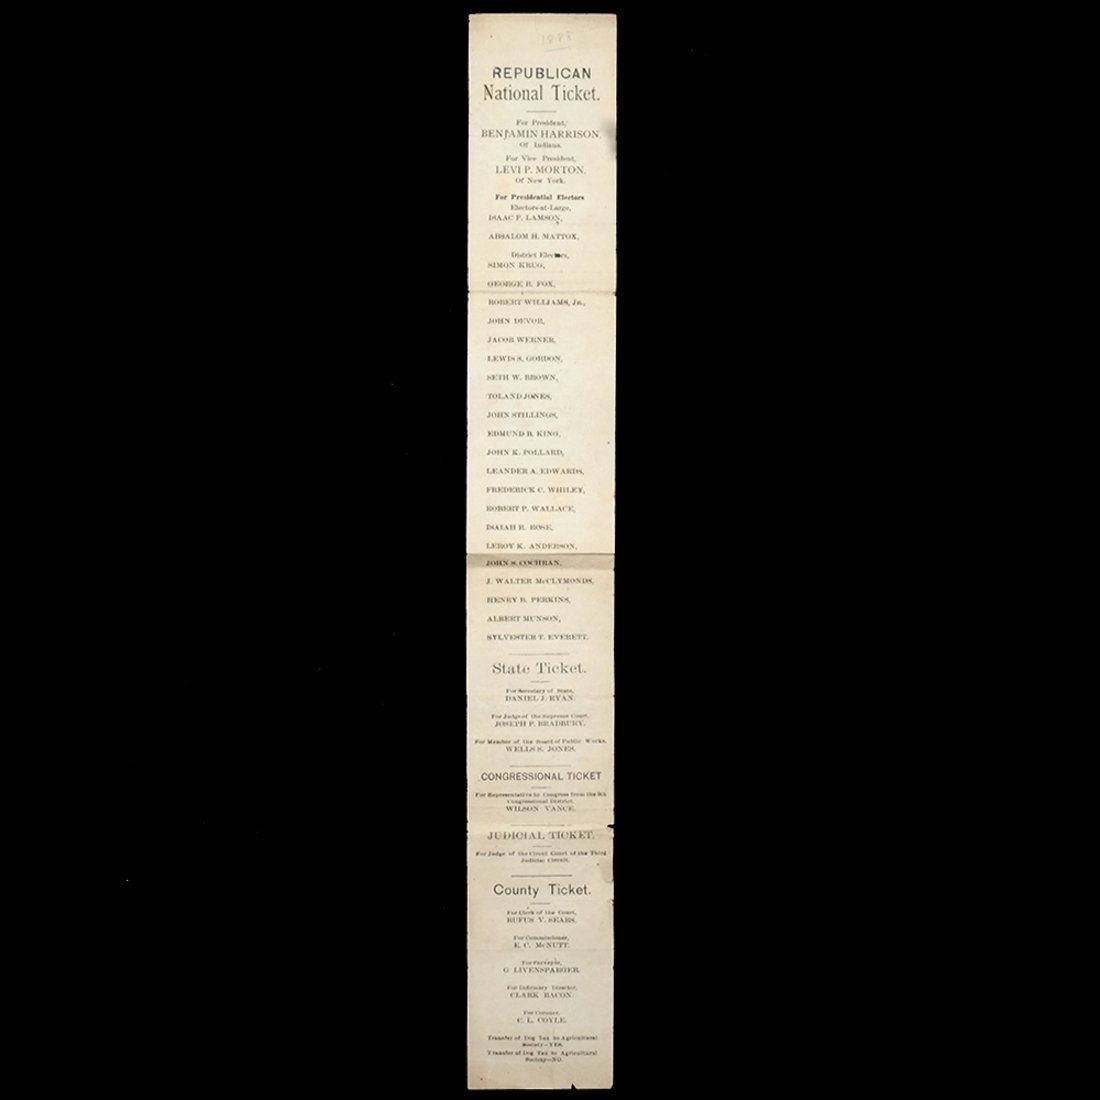 1888
REPUBLICAN
National Ticket.
For President,
BENJAMIN HARRISON,
Of Indiana.
For Vice President,
LEVI P. MORTON,
Of New York.
For Presidential Electors
Electors-at-Large,
ISAAC P. LAMSON,
ABSALOM H. MATTOX,
District Electors,
SIMON KRUG,
GEORGE R. FOX,
ROBERT WILLIAMS, Jr.,
JOHN DEVOR,
JACOB WERNER,
LEWIS S. GORDON,
SETH W. BROWN,
TOLAND JONES,
JOHN STILLINGS,
EDMUND B. KING,
JOHN K. POLLARD,
LEANDER A. EDWARDS,
FREDERICK C. WHILEY,
ROBERT P. WALLACE,
ISAIAH R. ROSE,
LEROY K. ANDERSON,
JOHN S. COCHRAN,
J. WALTER McCLYMONDS,
HENRY B. PERKINS,
ALBERT MUNSON,
SYLVESTER T. EVERETT.
State Ticket.
For Secretary of State,
DANIEL J. RYAN.
For Judge of the Supreme Court,
JOSEPH P. BRADBURY.
For Member of the Board of Public Works,
WELLS S. JONES.
CONGRESSIONAL TICKET
For Representative to Congress from the
Congressional District,
WILSON VANCE.
JUDICIAL TICKET.
For Judge of the Circuit Court of the Third
Judicial Circuit,
County Ticket.
For Clerk of the Court,
RUFUS V. SEARS.
For Commissioner,
E. C. McNUTT.
For
G LIVENSPARGER.
For Infirmary Director,
CLARK BACON.
For Coroner,
C. L. COYLE.
Transfer of Dog Tax to Agricultural
Society—YES.
Transfer of Dog Tax to Agricultural
Society—NO.